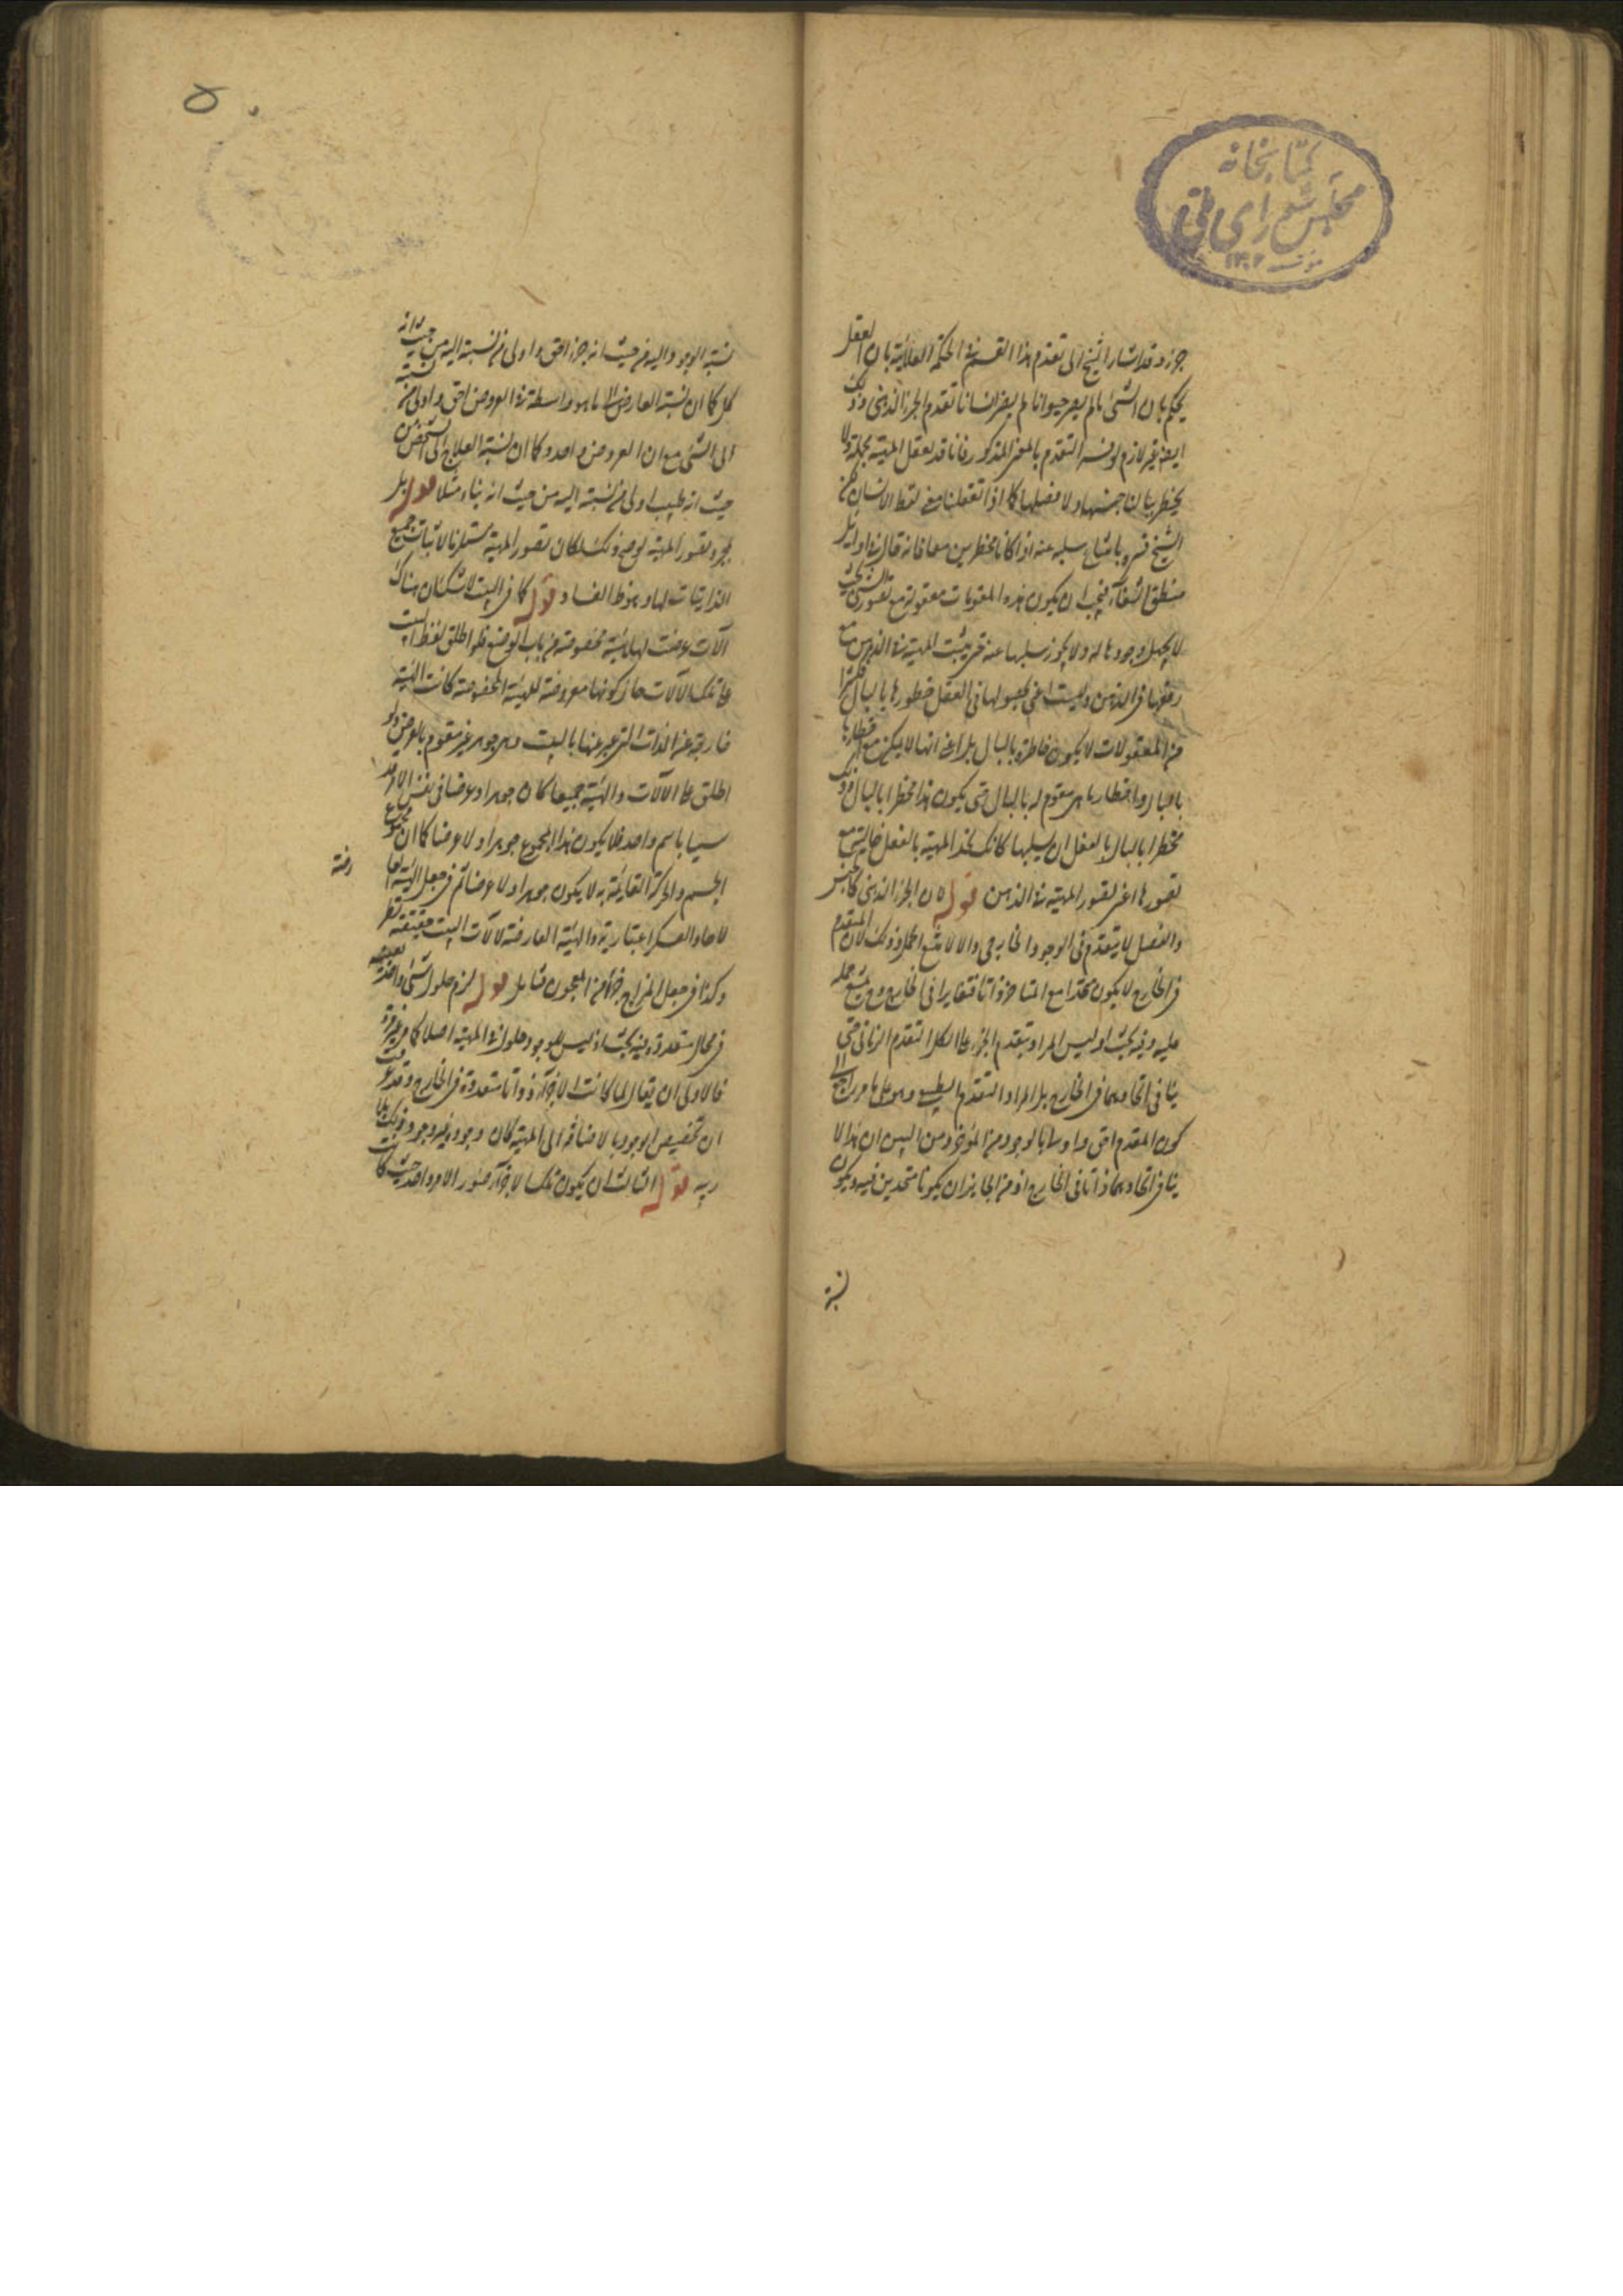 كتابخانه
مجلس شورای ملی
١٣٠٢
جزء وقد اشار الشيخ الى تقدم هذا القسم فى الحكمة العلائية بان العقل
يحكم بان الشئ ما لم يصر حيوانا لم يصر انسانا تقدم الجزء الذهنى وذلك
ايضا غير لازم لو فسر التقدم بالمعنى المذكور فانا قد نعقل المهية مجملة ولا
يخطر ببالنا جنسها ولا فصلها كما اذا تعقلنا معنى لفظ الانسان
الشيخ فسره بامتناع سلبه عنه اذا كانا مخطرين معا فانه قال فى اوائل
منطق الشفاء فيجب ان يكون هذه المقومات معقولة مع تصور الشئ
لا يجهل وجودها له ولا يجوز سلبها عنه حتى يثبت المهية فى الذهن مع
رفعها فى الذهن ولست اعنى بحصولها فى العقل خطورها بالبال فكثيرا
من المعقولات لا يكون خاطرة بالبال بل اعنى انها لا يمكن مع اخطارها
بالبال واخطار ما هى مقومة له بالبال حتى يكون هذا مخطرا بالبال وذلك
مخطرا بالبال بالفعل ان يسلبها كانك تجد المهية بالفعل خالية مع
تصورها اعنى تصور المهية فى الذهن قوله ان الجزء الذهنى كالجنس
والفصل لا يتقدم فى الوجود الخارجى والا لامتنع الحمل وذلك لان المتقدم
فى الخارج لا يكون متحدا مع المتاخر ذاتا فتغايرا فى الخارج وح يمتنع حمله
عليه وفيه بحث اذ ليس المراد بتقدم الجزء على الكل التقدم الزمانى حتى
ينافى اتحادهما فى الخارج بل المراد التقدم الطبيعى وهو على ما مر راجع الى
كون المقدم احق واولى بالوجود من المؤخر ومن البين ان هذا لا
ينافى اتحادهما ذاتا فى الخارج اذ من الجايز ان يكونا متحدين فيه ويكون
نسبة
٥
نسبة الوجود اليه من حيث انه جزء احق واولى من نسبته اليه من حيث انه
كل كما ان نسبة العارض الى ما هو واسطة فى العروض احق واولى من نسبته
الى الشئ مع ان العروض واحد وكما ان نسبة العلاج الى الشخص من
حيث انه طبيب اولى من نسبته اليه من حيث انه بناء مثلا قوله بل
مجرد تصور المهية لو صح ذلك لكان تصور المهية مستلزما لاثبات جميع
الذاتيات لها وهو ظ الفساد قوله كما فى البيت لا شك ان هناك
آلات عرضت لها هيئة مخصوصة من باب الوضع فلو اطلق لفظ البيت
على تلك الآلات حال كونها معروضة للهيئة المخصوصة كانت الهيئة
خارجة عن الذات التى عبر عنها بالبيت وهى جوهر غير متقوم بالعرض ولو
اطلق على الآلات والهيئة جميعا كان جوهرا وعرضا فى نفس الامر قد
سميا باسم واحد فلا يكون هذا المجموع جوهرا ولا عرضا كما ان مجموع
الجسم والحركة القايمة به لا يكون جوهرا ولا عرضا ثم فى جعل الهيئة العا
رضة
لآحاد العسكر اعتبارية والهيئة العارضة لآلات البيت حقيقته نظر
وكذا فى جعل المزاج جزء من المعجون تامل قوله لزم حلول شئ واحد بعينه
فى محال متعددة وفيه بحث اذ ليس للوجود حلول فى المهية اصلا كما مر غير مرة
فالاولى ان يقال لما كانت الاجزاء ذواتا متعددة فى الخارج وقد عرفت
ان تخصيص الوجود بالاضافة الى المهية كان وجود هذه غير وجود ذلك بلا
ريبه قوله الثالث ان يكون تلك الاجزاء صور الامر واحد حيث كانت